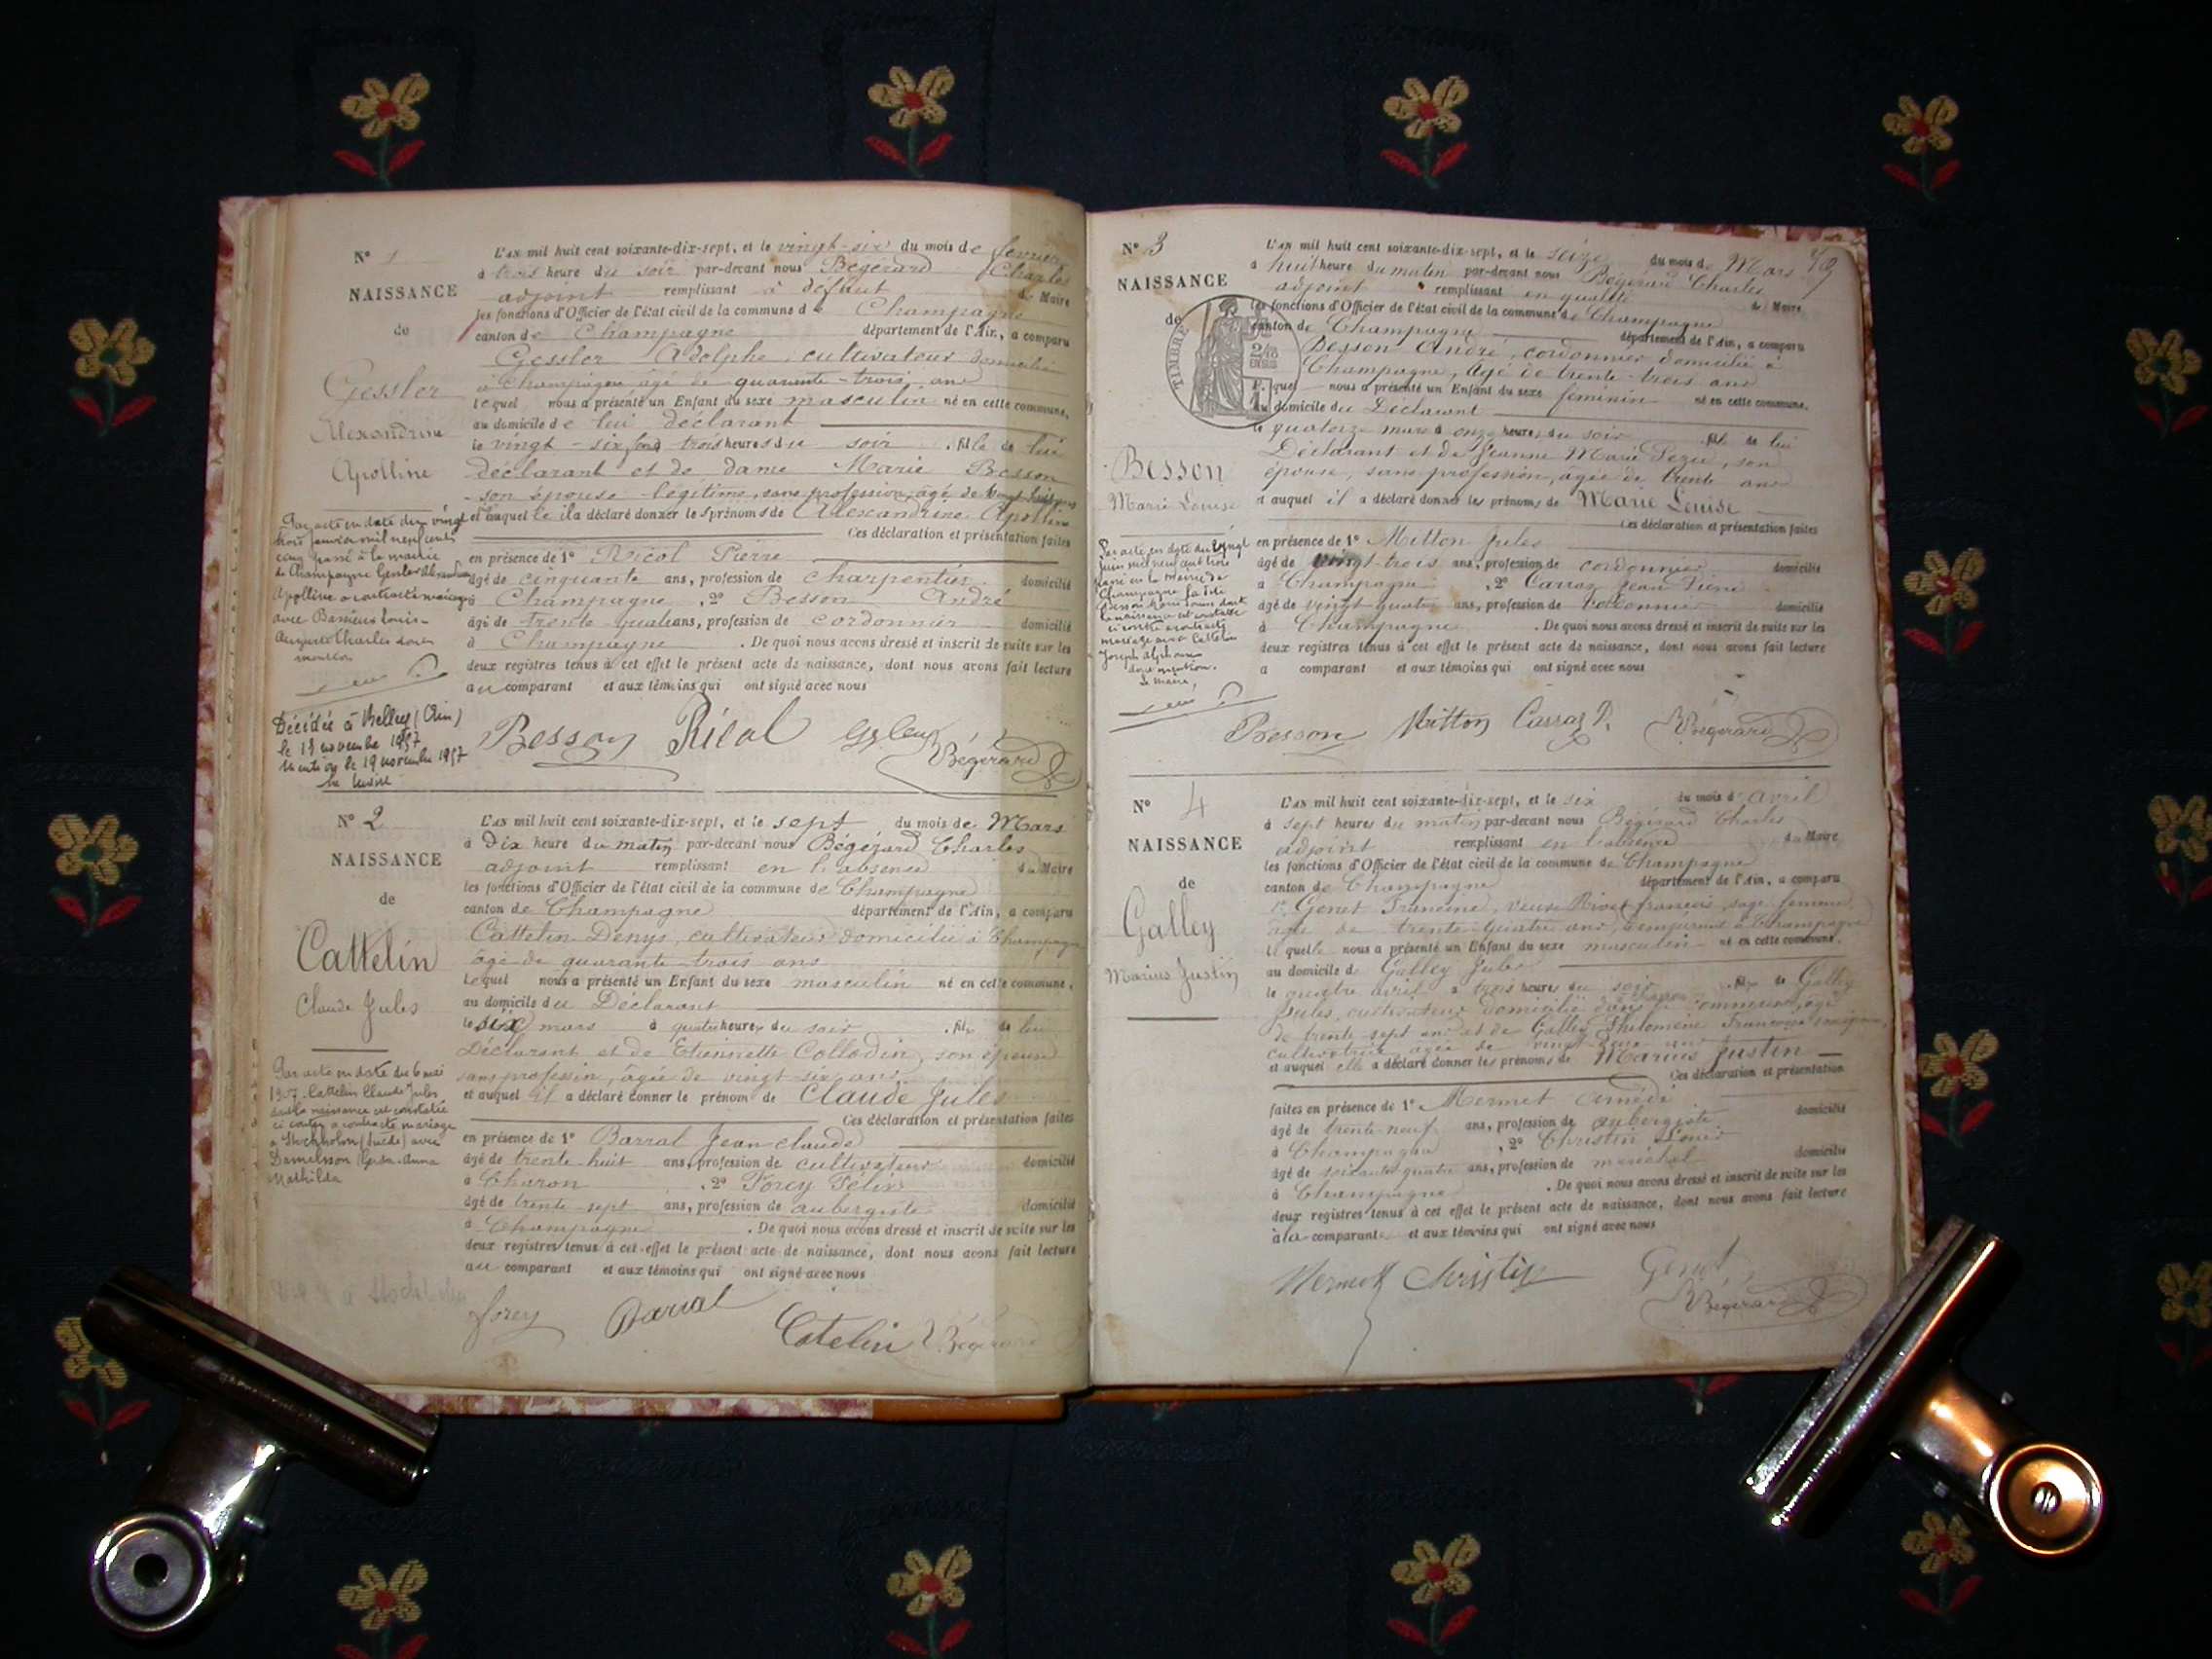 N° 1
NAISSANCE
de
Gessler
Alexandrine
Apolline
L'an mil huit cent soixante-dix-sept, et le vingt-six du mois de février
à trois heure du soir par-devant nous Bégérard Charles
adjoint remplissant à défaut du Maire
les fonctions d'Officier de l'état civil de la commune de Champagne
canton de Champagne département de l'Ain, a comparu
Gessler Adolphe, cultivateur domicilié
à Champagne âgé de quarante-trois ans
lequel nous a présenté un Enfant du sexe masculin né en cette commune,
au domicile de lui déclarant
le vingt-six trois heures du soir fille de lui
déclarant et de dame Marie Besson
son épouse légitime, sans profession, âgé de vingt
et auquel il a déclaré donner les prénoms de Alexandrine Apolline
Ces déclaration et présentation faites
en présence de 1° Ricol Pierre
âgé de cinquante ans, profession de charpentier domicilié
à Champagne, 2° Besson André
âgé de trente-quatre ans, profession de cordonnier domicilié
à Champagne. De quoi nous avons dressé et inscrit de suite sur les
deux registres tenus à cet effet le présent acte de naissance, dont nous avons fait lecture
au comparant et aux témoins qui ont signé avec nous
Par acte en date du vingt
trois janvier mil neuf cent
cinq passé à la mairie
de Champagne Gessler
Apolline a contracté mariage
avec Louis
Auguste Charles
Décédée à Belley (Ain)
le 19 novembre 1957
Mention le 19 novembre 1957
Besson Ricol Bégérard
N° 2
NAISSANCE
de
Cattelin
Claude Jules
L'an mil huit cent soixante-dix-sept, et le sept du mois de Mars
à Dix heure du matin par-devant nous Bégérard Charles
adjoint remplissant en l'absence du Maire
les fonctions d'Officier de l'état civil de la commune de Champagne
canton de Champagne département de l'Ain, a comparu
Cattelin Denys, cultivateur domicilié à Champagne
âgé de quarante-trois ans
lequel nous a présenté un Enfant du sexe masculin né en cette commune,
au domicile du Déclarant
le six mars à quatre heures du soir fils de lui
Déclarant et de Etiennette Collodin, son épouse
sans profession, âgée de vingt-six ans
et auquel il a déclaré donner le prénom de Claude Jules
Ces déclaration et présentation faites
en présence de 1° Barral Jean Claude
âgé de trente-huit ans, profession de cultivateur domicilié
à Charon, 2° Forey Félix
âgé de trente-sept ans, profession de aubergiste domicilié
à Champagne. De quoi nous avons dressé et inscrit de suite sur les
deux registres tenus à cet effet le présent acte de naissance, dont nous avons fait lecture
au comparant et aux témoins qui ont signé avec nous
Par acte en date du 6 mai
1907 Cattelin Claude Jules
dont la naissance est constatée
ci contre a contracté mariage
à Stockholm (Suède) avec
Danielsson Gerda Anna
Mathilda
Forey Barral Catelin Bégérard
N° 3
NAISSANCE
de
TIMBRE
Besson
Marie Louise
L'an mil huit cent soixante-dix-sept, et le seize du mois de Mars
à huit heure du matin par-devant nous Bégérard Charles
adjoint remplissant en qualité de Maire
les fonctions d'Officier de l'état civil de la commune de Champagne
canton de Champagne département de l'Ain, a comparu
Besson André, cordonnier domicilié à
Champagne, âgé de trente-trois ans
lequel nous a présenté un Enfant du sexe féminin né en cette commune,
au domicile du Déclarant
le quatorze mars à onze heures du soir fille de lui
Déclarant et de Jeanne Marie, son
épouse, sans profession, âgée de trente ans
et auquel il a déclaré donner les prénoms de Marie Louise
Ces déclaration et présentation faites
en présence de 1° Mitton Jules
âgé de vingt-trois ans, profession de cordonnier domicilié
à Champagne, 2° Carraz Jean Pierre
âgé de vingt quatre ans, profession de domicilié
à Champagne. De quoi nous avons dressé et inscrit de suite sur les
deux registres tenus à cet effet le présent acte de naissance, dont nous avons fait lecture
a comparant et aux témoins qui ont signé avec nous
Par acte en date du vingt
juin mil neuf cent trois
passé en la mairie de
Champagne la dite
Besson Marie Louise dont
la naissance est constatée
ci contre a contracté
mariage avec Cattelin
Joseph Alphonse
dont mention.
Le Maire,
Besson Mitton Carraz P. Bégérard
N° 4
NAISSANCE
de
Galley
Marius Justin
L'an mil huit cent soixante-dix-sept, et le six du mois d'avril
à sept heures du matin par-devant nous Bégérard Charles
adjoint remplissant en l'absence du Maire
les fonctions d'Officier de l'état civil de la commune de Champagne
canton de Champagne département de l'Ain, a comparu
Genet Francine, veuve Rivet François, sage femme,
âgée de trente-quatre ans, demeurant à Champagne
lequelle nous a présenté un Enfant du sexe masculin né en cette commune,
au domicile de Galley Jules
le quatre avril à trois heures du soir fils de Galley
Jules, cultivateur domicilié dans commune, âgé
de trente-sept ans et de Galley Philomène Françoise
cultivatrice âgée de vingt
et auquel elle a déclaré donner les prénoms de Marius Justin
Ces déclaration et présentation
faites en présence de 1° Mermet Amédé
âgé de trente-neuf ans, profession de aubergiste domicilié
à Champagne, 2° Christin Louis
âgé de soixante-quatre ans, profession de maréchal domicilié
à Champagne. De quoi nous avons dressé et inscrit de suite sur les
deux registres tenus à cet effet le présent acte de naissance, dont nous avons fait lecture
à la comparante et aux témoins qui ont signé avec nous
Mermet Christin Genet
Bégérard